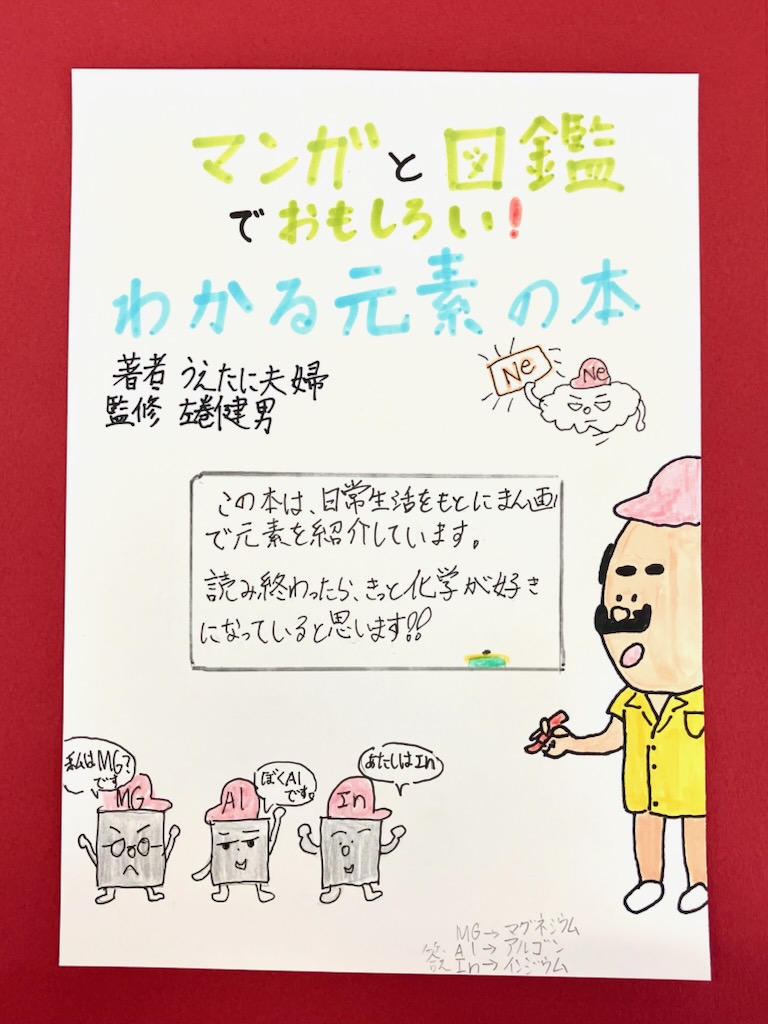 マンガと図鑑
でおもしろい!
わかる元素の本
著者 うえたに夫婦
監修 左巻健男
Ne
Ne
この本は、日常生活をもとにまん画
で元素を紹介しています。
読み終わったら、きっと化学が好き
になっていると思います!!
私はMG?
です
MG
ぼくAl
です。
Al
あたしはIn
In
MG→マグネシウム
答え Al→アルゴン
In→インジウム